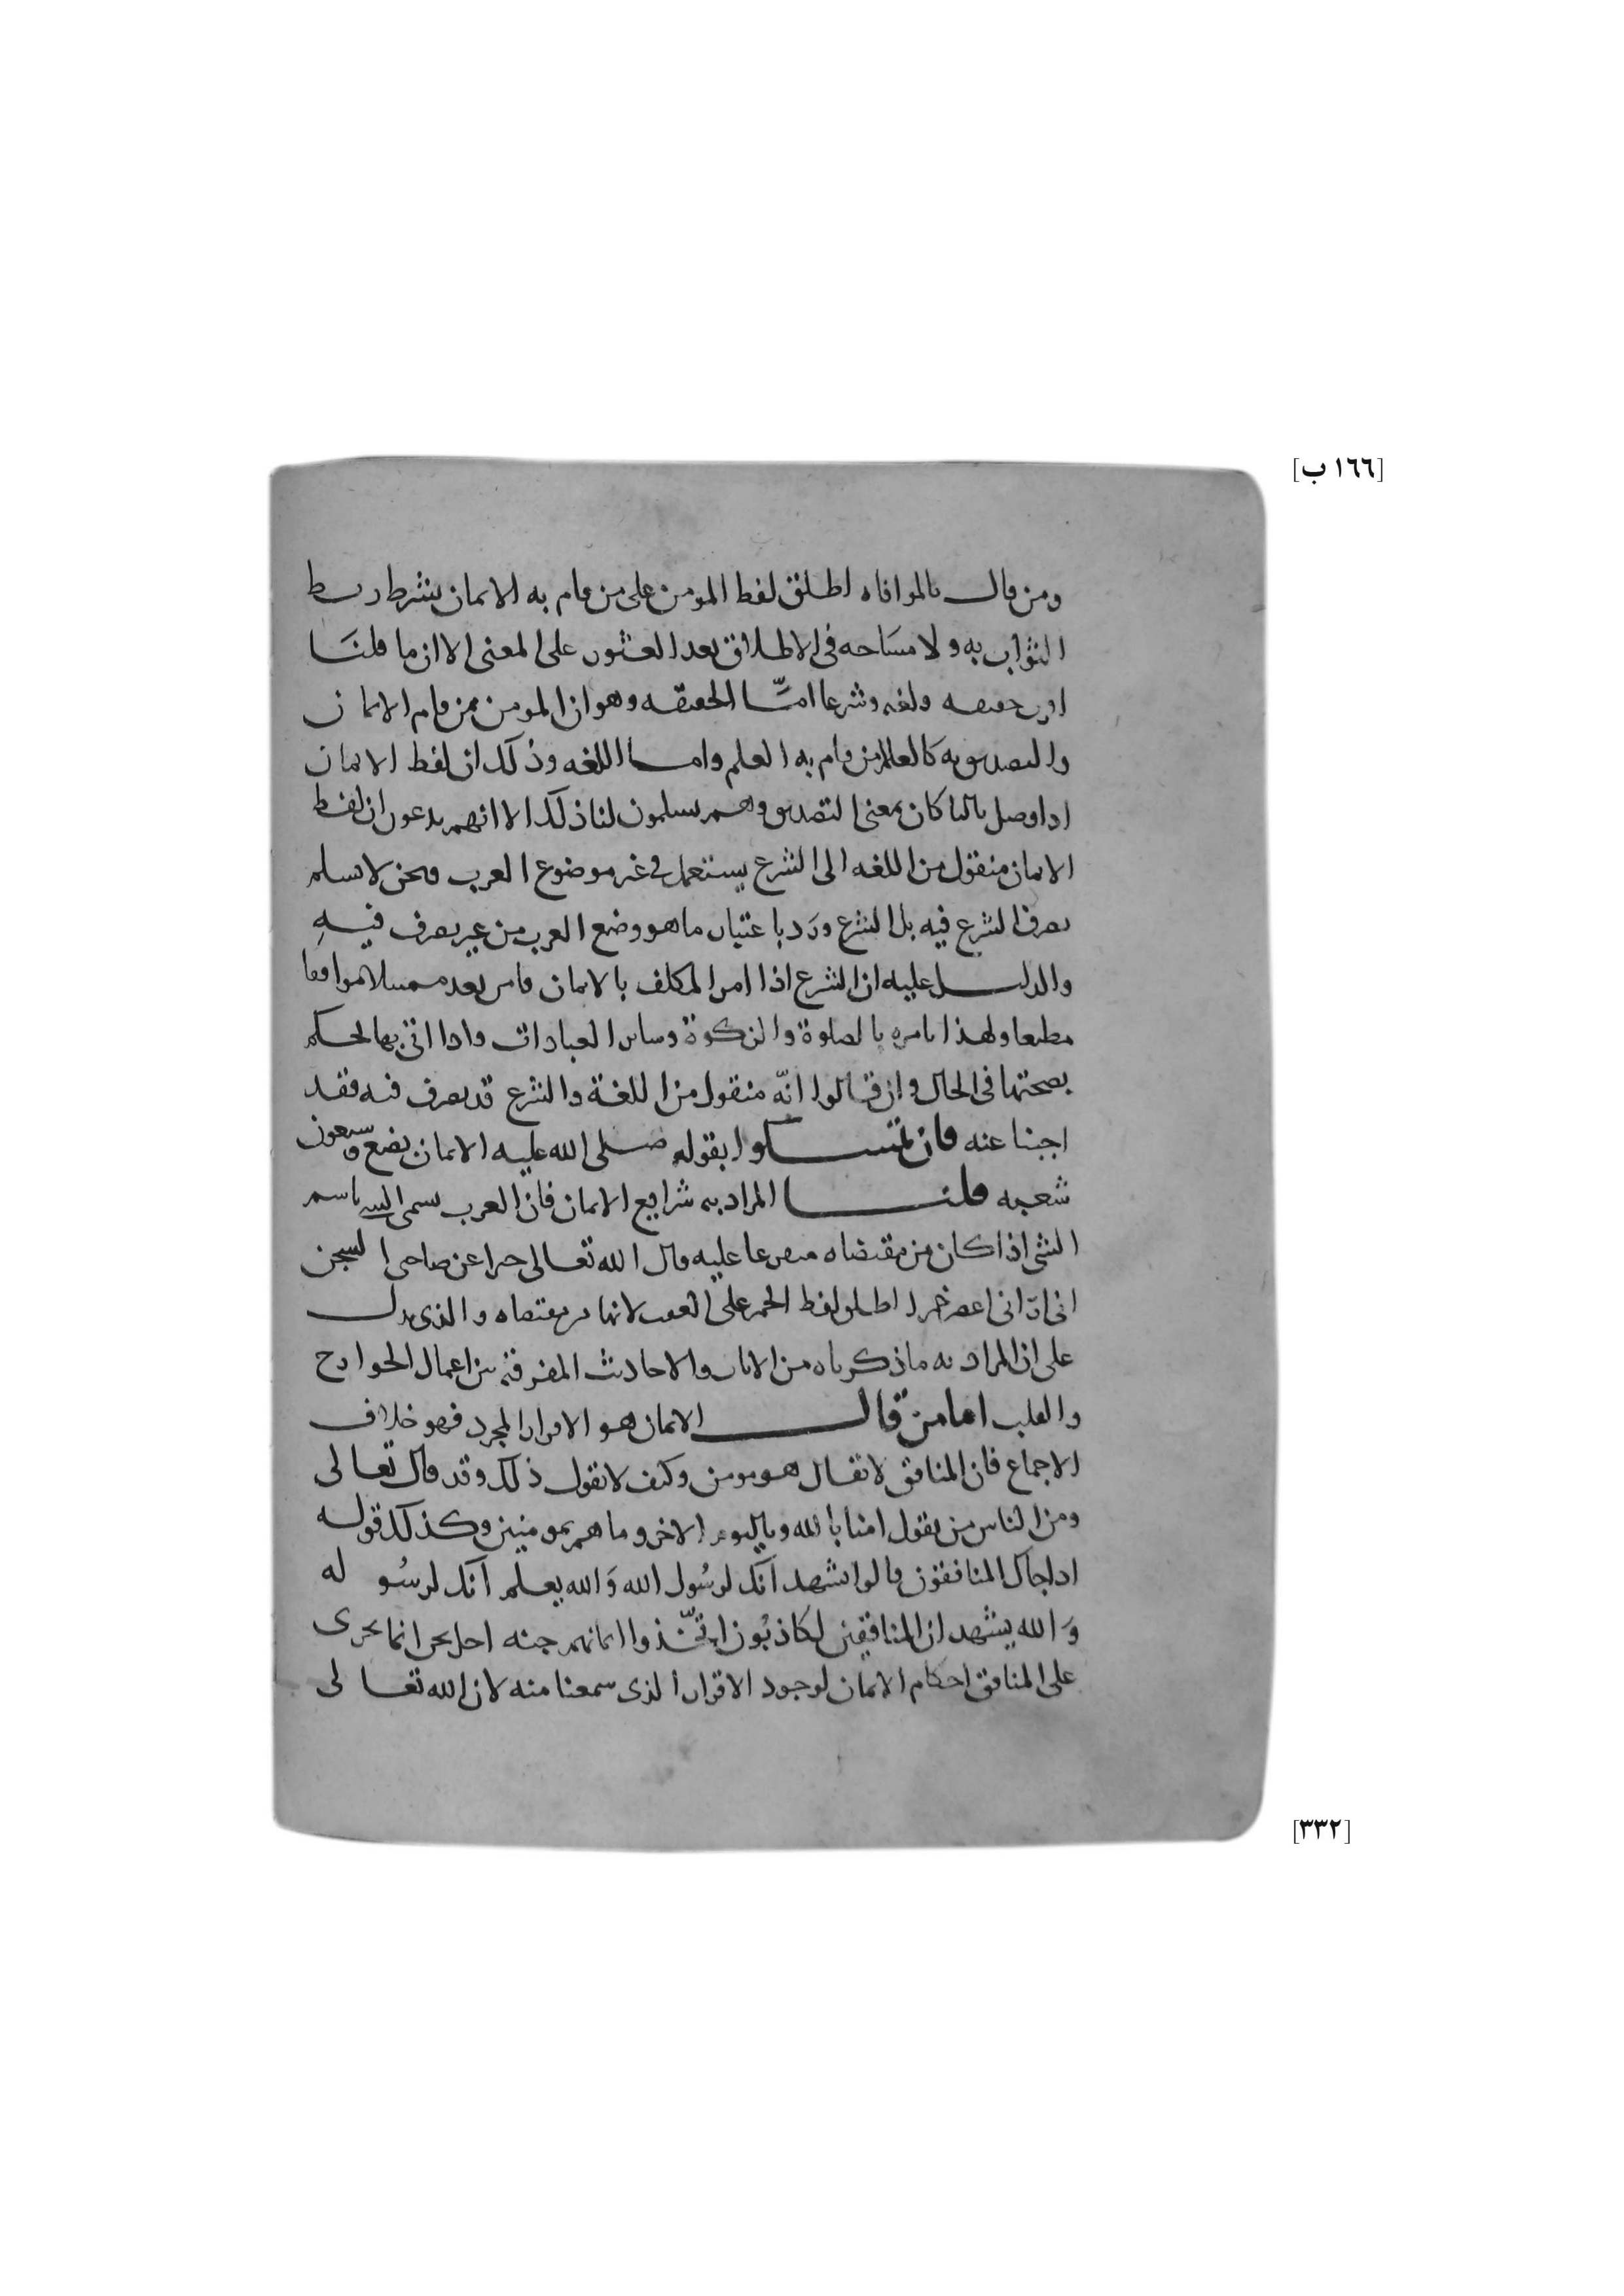 [١٦٦ ب]
ومن قال بالموافاه اطلق لفظ المومن على من قام به الايمان بشرط ربط
الثواب به ولا مساحه فى الاطلاق بعد العثور على المعنى الا ان ما قلنا
اولى حقيقه ولغه وشرعا امّا الحقيقه وهو ان المومن من قام الايمان
والتصديق به كالعالم من قام به العلم واما اللغه وذلك ان لفظ الايمان
اذا وصل بالبا كان بمعنى التصديق وهم يسلمون لنا ذلك الا انهم يدعون ان لفظ
الايمان منقول من اللغه الى الشرع يستعمل فى غير موضوع العرب ونحن لا نسلم
تصرف الشرع فيه بل الشرع ورد باعتبار ما هو وضع العرب من غير تصرف فيهِ
والدليل عليه ان الشرع اذا امر المكلف بالايمان فامن يعد ممتثلا موافقا
مطيعا ولهذا يامره بالصلوة والزكوة وساير العبادات واذا اتى بها يحكم
بصحتها فى الحال وان قالوا انّه منقول من اللغة والشرع قد تصرف فيه فقد
اجبنا عنه فان تمسكوا بقوله صلى الله عليه الايمان بضع وسبعون
شعبه قلنا المراد به شرايع الايمان فان العرب تسمى الشى باسم
الشى اذا كان من مقتضاه متفرعا عليه قال الله تعالى خبرا عن صاحبى السجن
انى ارانى اعصر خمرا اطلق لفظ الخمر على العنب لانها من مقتضاه والذى يدل
على ان المراد به ما ذكرناه من الايات والاحاديث المفرقة بين اعمال الجوارح
والقلب اما من قال الايمان هو الاقرار المجرد فهو خلاف
الاجماع فان المنافق لا يقال هو مومن وكيف لا نقول ذلك وقد قال تعالى
ومن الناس من يقول امنا بالله وباليوم الاخر وما هم بمومنين وكذلك قوله
اذا جاك المنافقون قالوا نشهد انك لرسُول الله وَالله يعلم انك لرسُوله
وَالله يشهد ان المنافقين لكاذبُون اتخّذوا ايمانهم جنه اجل نحن انما نجرى
على المنافق احكام الايمان لوجود الاقرار الذى سمعنا منه لان الله تعالى
[٣٣٢]